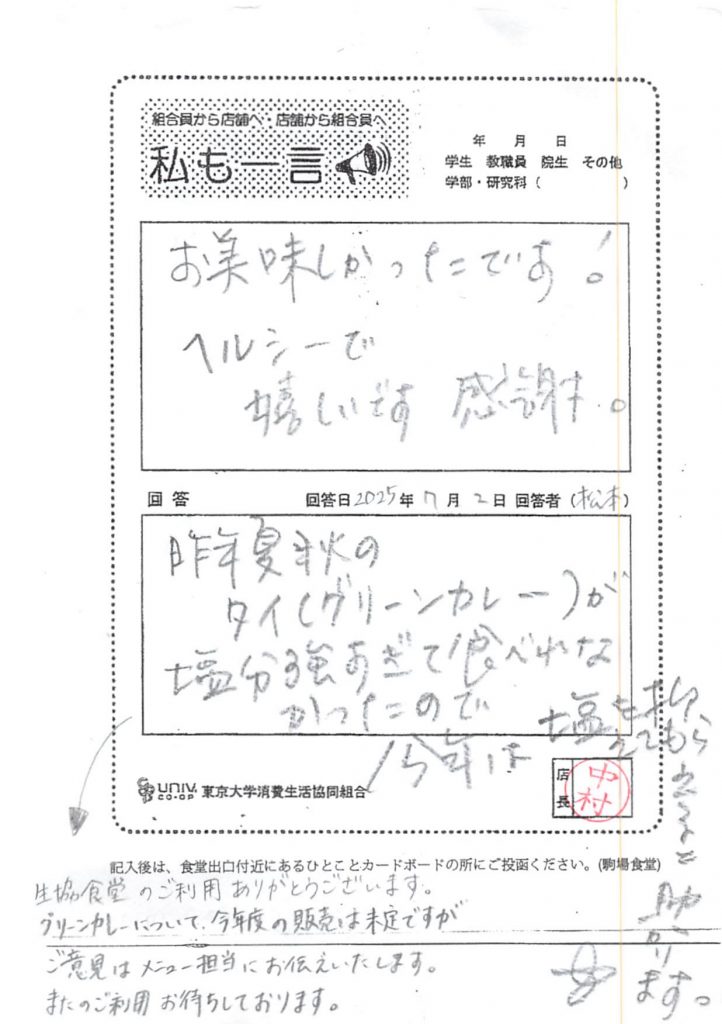 組合員から店舗へ・店舗から組合員へ
私も一言
年 月 日
学生 教職員 院生 その他
学部・研究科( )
お美味しかったです!
ヘルシーで
嬉しいです 感謝す。
回答 回答日2025年7月2日 回答者(松本)
昨年夏秋の
タイ(グリーンカレー)が
塩分強すぎて食べれな
かったので
今年は 塩を抑
えてもら
うと
助かり
ます。
UNIV. CO-OP 東京大学消費生活協同組合
店長 中村
記入後は、食堂出口付近にあるひとことカードボードの所にご投函ください。(駒場食堂)
生協食堂のご利用ありがとうございます。
グリーンカレーについて、今年度の販売は未定ですが
ご意見はメニュー担当にお伝えいたします。
またのご利用お待ちしております。